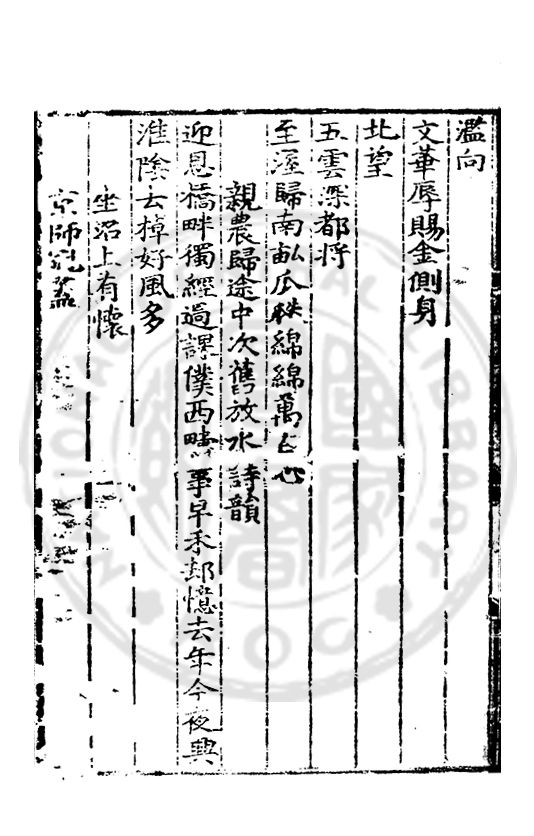 濫向
文華辱賜金側身
北望
五雲深都將
至渥歸南畝瓜瓞綿綿萬古心
親農歸途中次舊放水詩韻
迎恩橋畔獨經過課僕西疇事早禾却憶去年今夜興
淮陰去棹好風多
坐沼上有懷
京師
NATIONAL CENTRAL LIBRARY